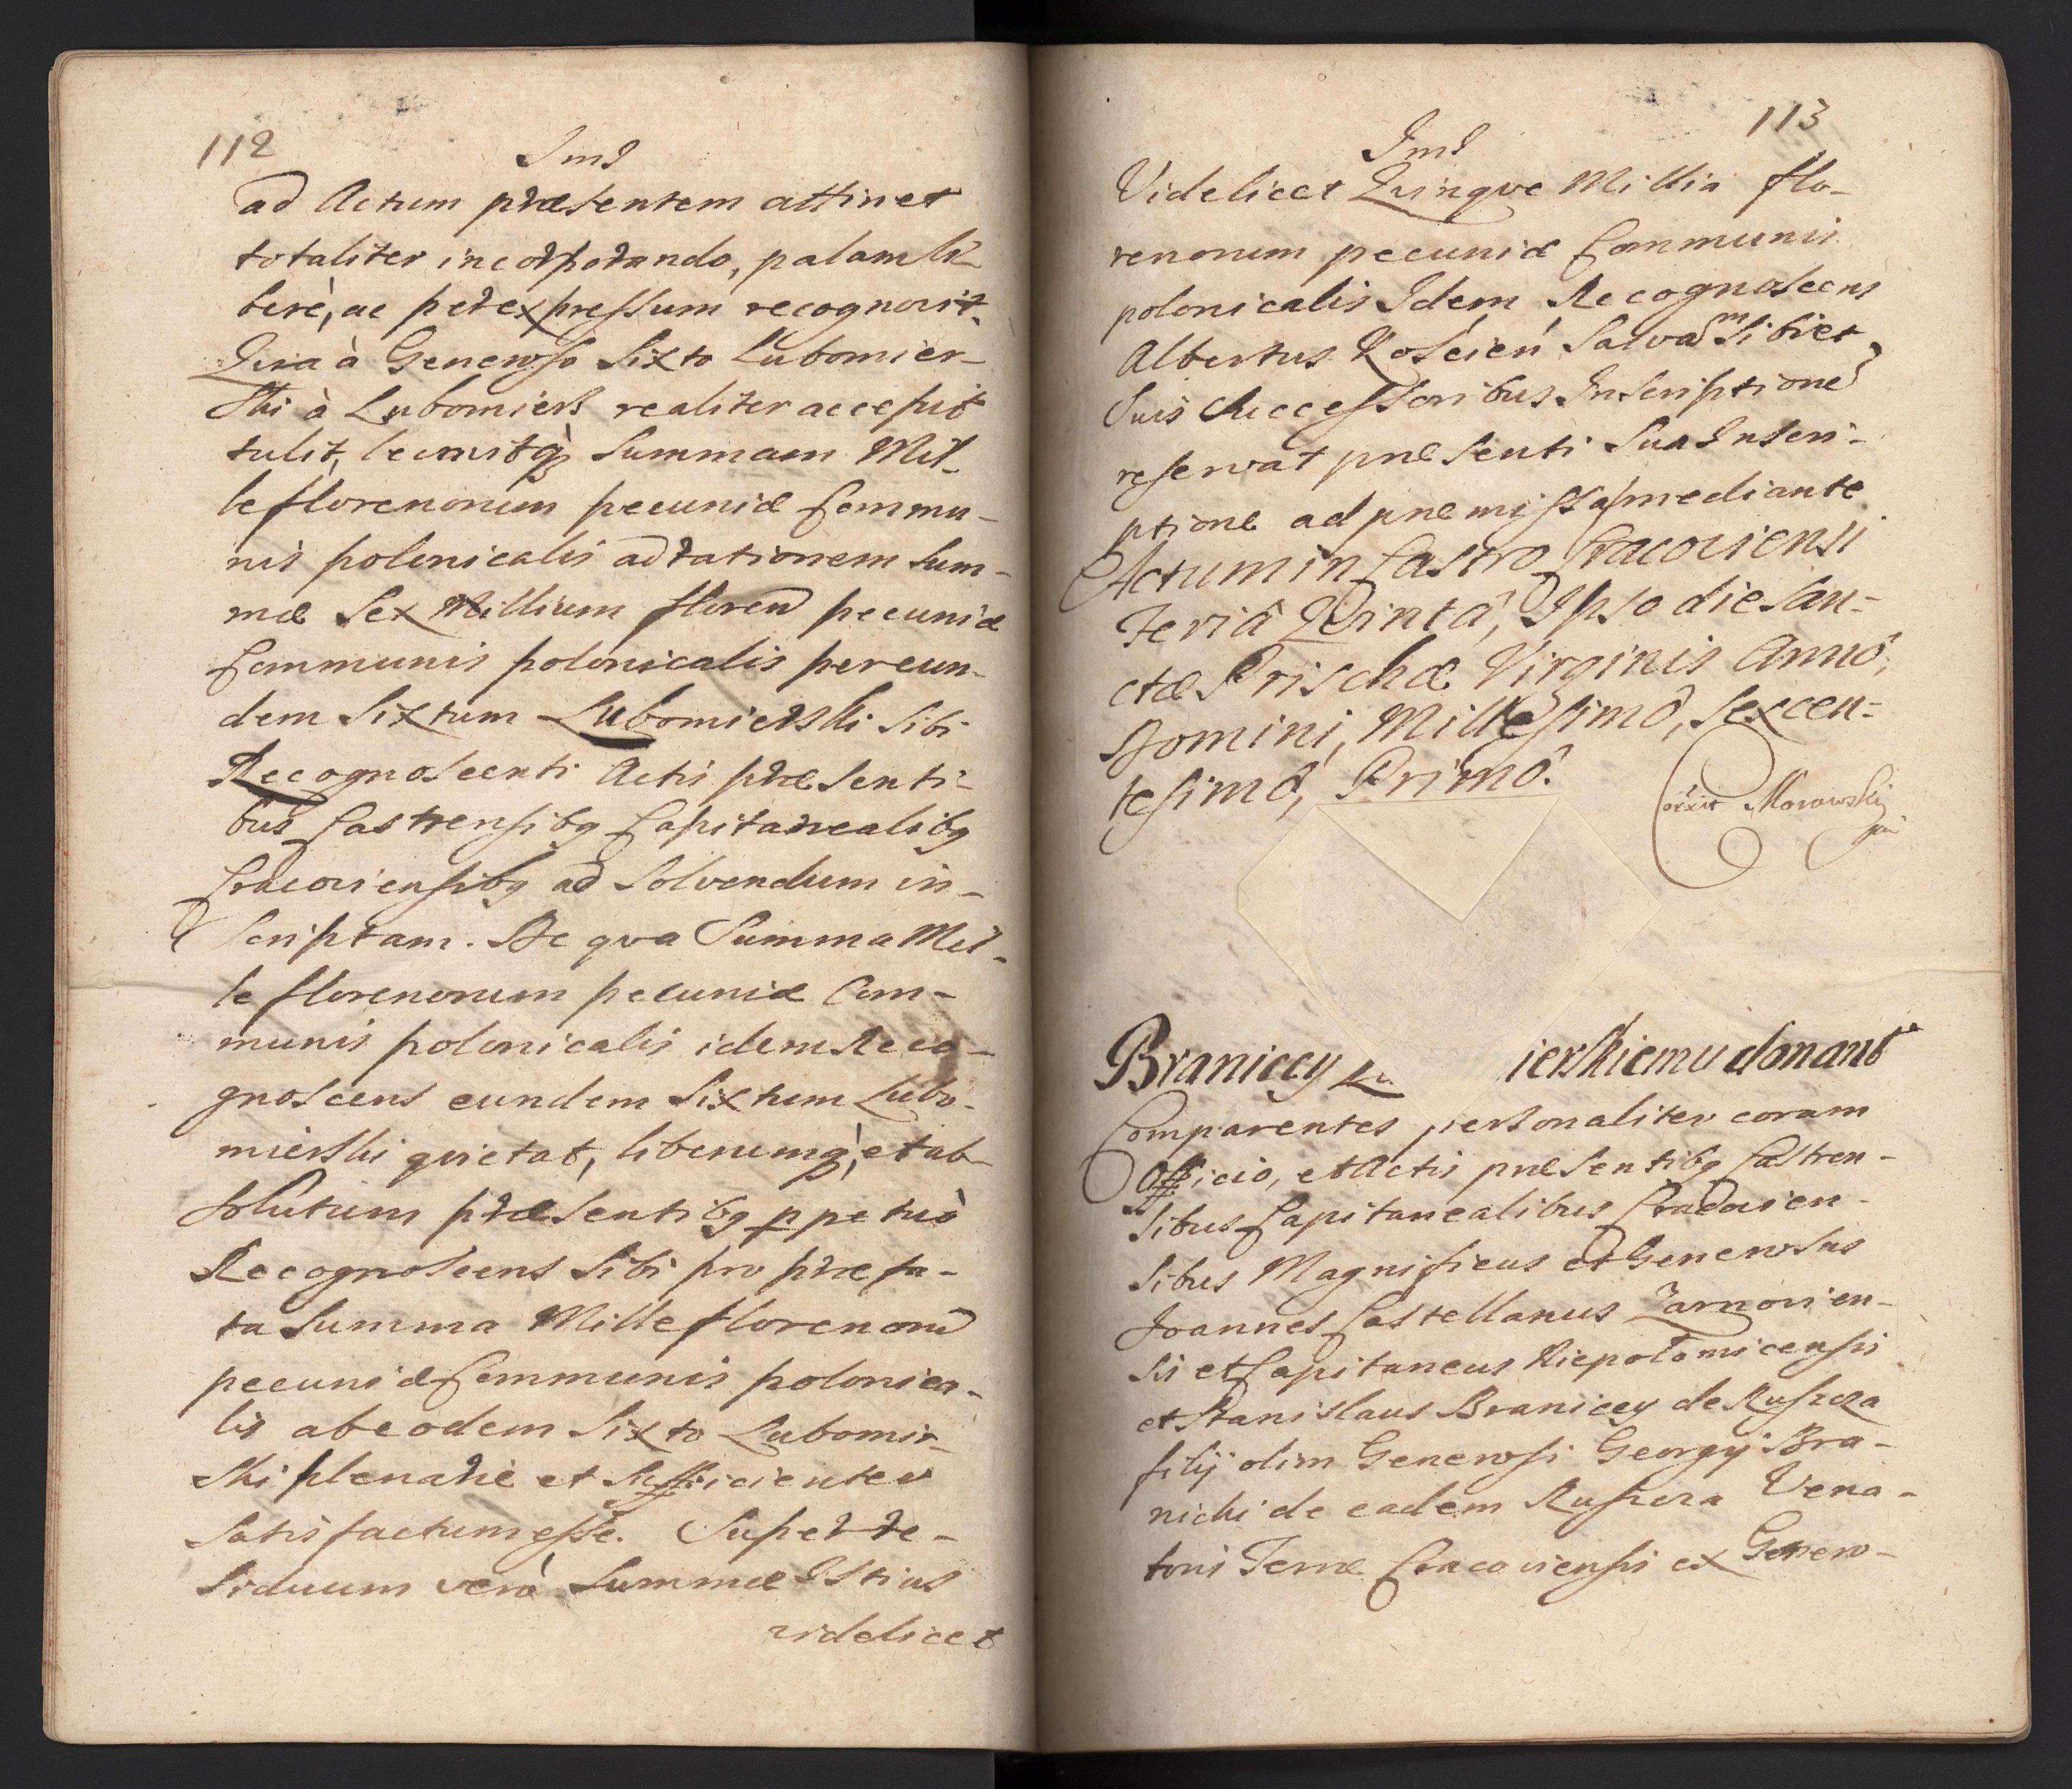 112
Jmd
ad Actum præsentem attinet
totaliter incorporando, palam li-
berè, ac per expressum recognovit.
Quia à Generoso Sixto Lubomier-
ski à Lubomierz realiter accepit
tulit, levavitq; Summam Mil-
le florenorum pecuniæ Commu-
nis polonicalis ad rationem Sum-
mæ Sex Millium floren pecuniæ
Communis polonicalis per eun-
dem Sixtum Lubomierski Sibi
Recognoscenti Actis præsenti-
bus Castrensibq Capitanealibq
Cracoviensibq ad Solvendum in-
Scriptam. De qva Summa Mil-
le florenorum pecuniæ Com-
munis polonicalis idem Reco-
gnoscens eundem Sixtum Lubo-
mierski qvietat, liberumq;, et ab-
solutum præsentibq ppetuò
Recognoscens Sibi pro præfa-
ta Summa Mille florenorum
pecuniæ Communis polonica-
lis ab eodem Sixto Lubomir-
ski plenariè et Sufficienter
Satisfactum esse. Super re-
siduum verò Summæ Istius
videlicet
113
Jmd
Videlicet Qvinqve Millia flo-
renorum pecuniæ Communis
polonicalis Idem Recognoscens
Albertus Koścień Salvam Sibi et
Suis Successoribus Inscriptionem
reservat præsenti Sua Inscri-
ptione ad præmissa mediante
Actum in Castro Cracoviensi
Feriâ Qvintâ, Ipso die San-
ctæ Prischæ Virginis Annô,
Domini, Millesimô, Sexcen-
tesimô, Primô.
Corrxit Morawski
Braniccy Lu ierskiemu donant
Comparentes personaliter coram
Officio, et Actis præsentibq Castren-
sibus Capitanealibus Cracovien-
sibus Magnificus et Generosus
Joannes Castellanus Żarnovien-
sis et Capitaneus Niepołomicensis
et Stanislaus Braniccy de Ruszcza
filij olim Generosi Georgij Bra-
nicki de eadem Ruszcza Vena-
toris Terræ Cracoviensis ex Genero-